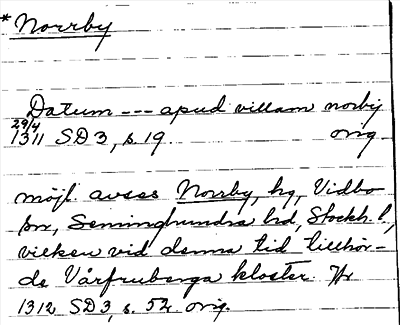 * Norrby
Datum --- apud villam norby
29/4
1311 SD 3, s. 19. orig.
möjl. avses Norrby, hg, Vidbo
sn, Seminghundra hd, Stockh. l.,
vilken vid denna tid tillhör-
de Vårfruberga kloster. Jfr
1312 SD 3, s. 52. orig.